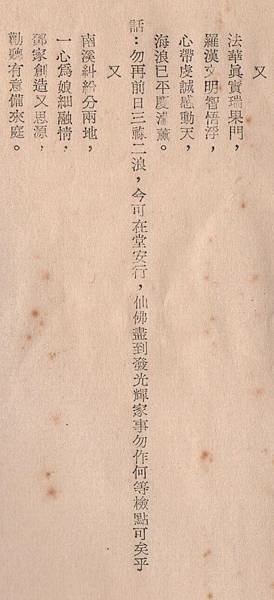 又
法華眞實瑞果門，
羅漢文明智悟浮，
心帶虔誠感動天，
海浪已平慶濤薰。
話：勿再前日三藤二浪，今可在堂安行，仙佛盡到發光輝家事勿作何等檢點可矣乎
又
南溪糾紛分兩地，
一心爲娘細融情，
鄧家創造又思源，
勸聽有意備來庭。